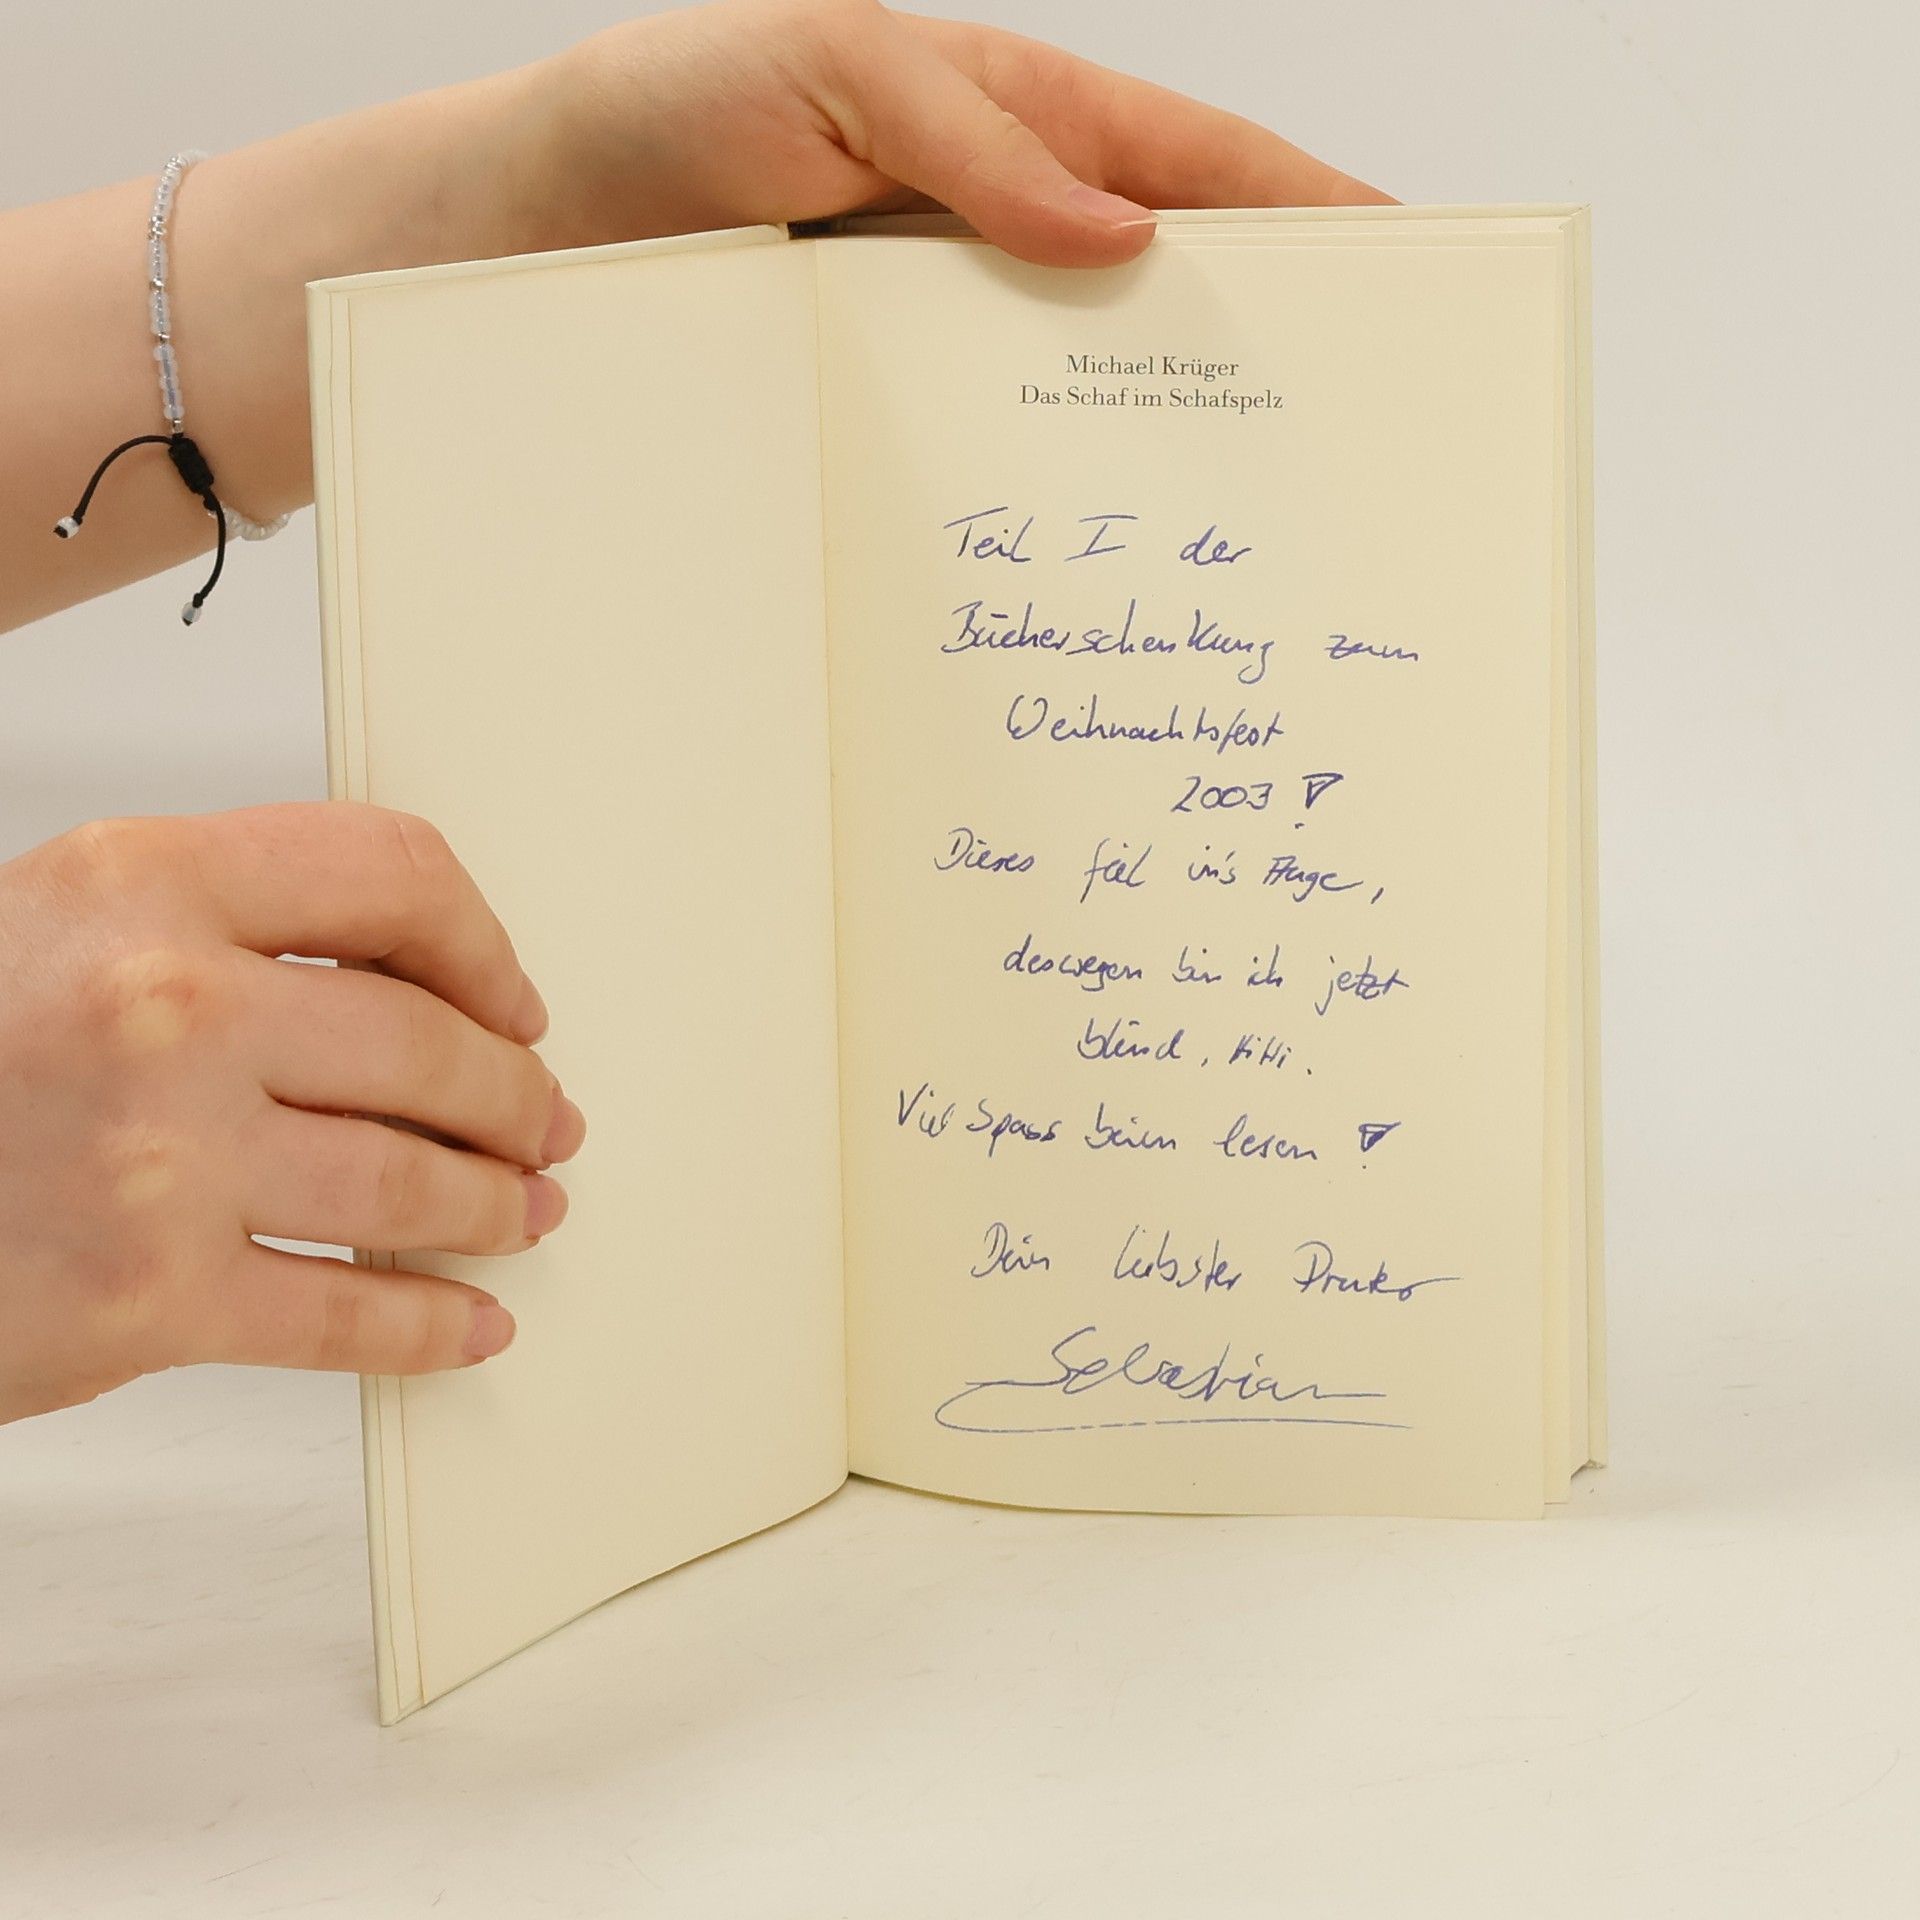 Michael Krüger
Das Schaf im Schafspelz
Teil I der
Bücherschenkung zum
Weihnachtsfest
2003 !
Dieses fiel in's Auge,
deswegen bin ich jetzt
blind, HiHi.
Viel Spass beim lesen !
Dein liebster
Sebastian